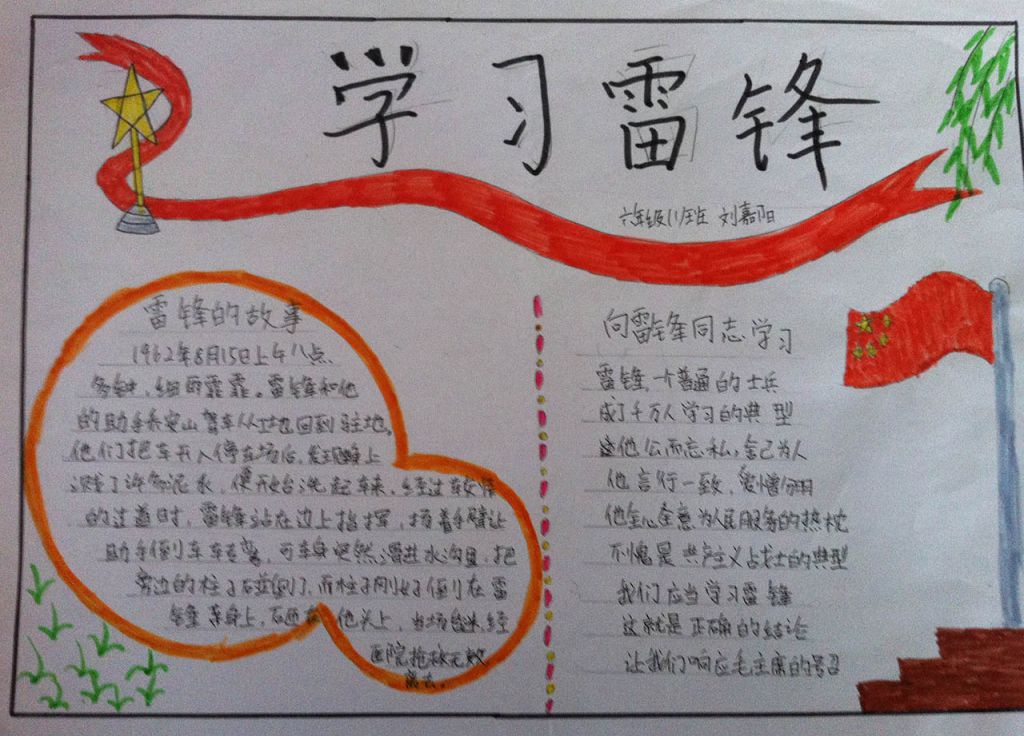 学习雷锋
六年级(1)班 刘嘉阳
雷锋的故事
1962年8月15日上午八点
多钟,细雨霏霏。雷锋和他
的助手乔安山驾车从工地回到驻地。
他们把车开入停车场后,发现车上
溅了许多泥水,便开始洗起车来。经过
的过道时,雷锋站在边上指挥,扬着手臂让
助手倒车车转弯,可车身突然滑进水沟里,把
旁边的柱子碰倒了,而柱子刚好倒在雷
锋亲身上,砸在他头上,当场经
医院抢救无效
离去。
向雷锋同志学习
雷锋,一个普通的士兵
成了千万人学习的典型
这他公而忘私,舍己为人
他言行一致,爱憎分明
他全心全意为人民服务的热忱
不愧是共产主义战士的典型
我们应当学习雷锋
这就是正确的结论
让我们响应毛主席的号召